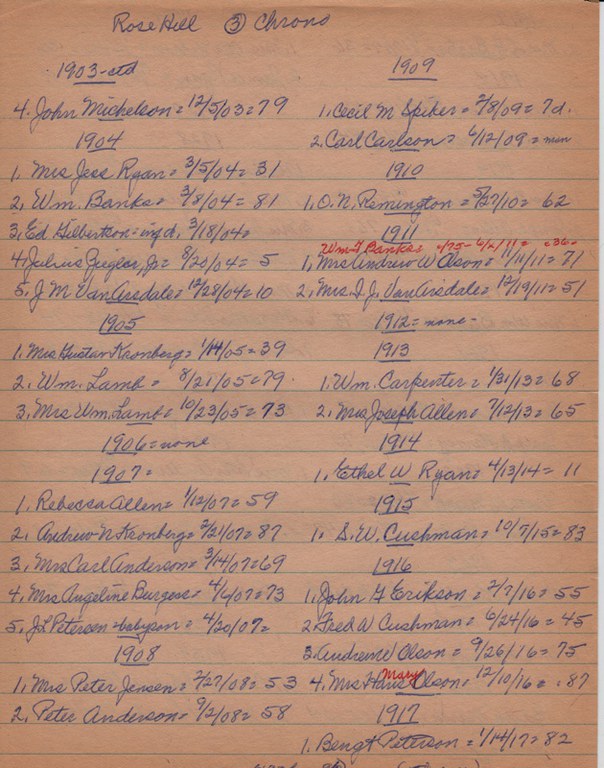 Rose Hill ③ Chrono
1903-ctd
4. John Mickelson = 12/5/03 = 79
1904
1. Mrs Jess Ryan = 3/5/04 = 31
2. Wm. Banks = 3/8/04 = 81
3. Ed Gilbertson = inf d. 3/18/04 =
4. Julius Ziegler, Jr = 8/20/04 = 5
5. J M VanArsdale = 12/28/04 = 10
1905
1. Mrs Gustav Kronberg = 1/14/05 = 39
2. Wm. Lamb = 8/21/05 = 79.
3. Mrs Wm. Lamb = 10/23/05 = 73
1906 = none
1907 =
1. Rebecca Allen = 1/12/07 = 59
2. Andrew N Kronberg = 2/21/07 = 87
3. Mrs Carl Anderson = 3/14/07 = 69
4. Mrs Angeline Burgess = 4/6/07 = 73
5. J L Petersen = babyson = 4/20/07 =
1908
1. Mrs Peter Jensen = 2/27/08 = 53
2. Peter Anderson = 9/2/08 = 58
1909
1. Cecil M Spiker = 2/8/09 = 7d.
2. Carl Carlson = 6/12/09 = min
1910
1. O. N. Remington = 5/27/10 = 62
1911
Wm T Banks = /75 - 6/2/11 = = 36 =
1, Mrs Andrew W Olson = 11/11/11 = 71
2, Mrs I J. VanArsdale = 12/19/11 = 51
1912 = none -
1913
1. Wm. Carpenter = 1/31/13 = 68
2. Mrs Joseph Allen = 7/12/13 = 65
1914
1. Ethel W Ryan = 4/13/14 = 11
1915
1. S. W. Cushman = 10/7/15 = 83
1916
1. John G Erikson = 2/7/16 = 55
2. Fred W Cushman = 6/24/16 = 45
3. Andrew W Olson = 9/26/16 = 75
4. Mrs Hans Mary Olson = 12/10/16 = 87
1917
1. Bengt Peterson = 1/14/17 = 82